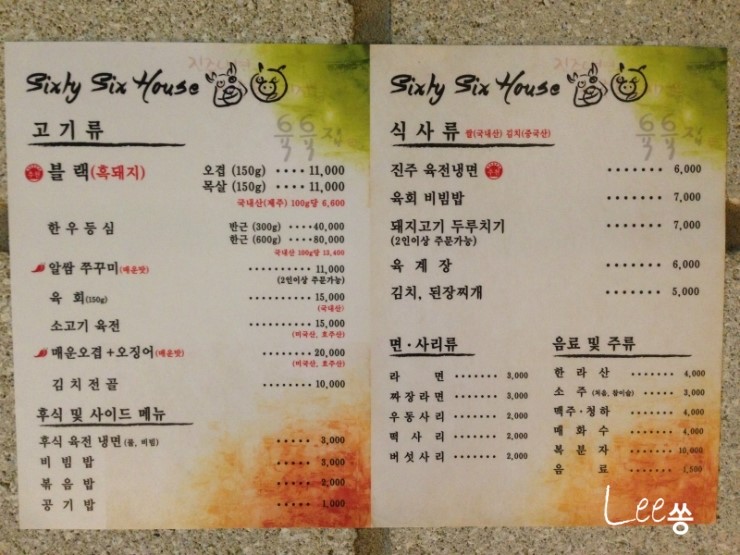 Sixty Six House
고기류
블랙(흑돼지) 오겹 (150g) ···· 11,000
목살 (150g) ···· 11,000
국내산(제주) 100g당 6,600
한우등심 반근 (300g) ···· 40,000
한근 (600g) ···· 80,000
국내산 100g당 13,400
알쌈 쭈꾸미(매운맛) ·········· 11,000
(2인이상 주문가능)
육 회(150g) ·········· 15,000
(국내산)
소고기 육전 ····· 15,000
(미국산, 호주산)
매운오겹+오징어(매운맛) ······· 20,000
(미국산, 호주산)
김치전골 ········· 10,000
후식 및 사이드 메뉴
후식 육전 냉면(물, 비빔) ····· 3,000
비빔밥 ····· 3,000
볶음밥 ····· 2,000
공기밥 ····· 1,000
Sixty Six House
66
집
식사류 쌀(국내산) 김치(중국산)
진주 육전냉면 ······· 6,000
육회 비빔밥 ······· 7,000
돼지고기 두루치기 ······· 7,000
(2인이상 주문가능)
육 계 장 ······· 6,000
김치, 된장찌개 ······· 5,000
면·사리류
라 면 ······· 3,000
짜장라면 ······· 3,000
우동사리 ······· 2,000
떡 사 리 ······· 2,000
버섯사리 ······· 2,000
음료 및 주류
한 라 산 ······ 4,000
소 주 (처음, 참이슬) ····· 3,000
맥주·청하 ······ 4,000
매 화 수 ······ 4,000
복 분 자 ······ 10,000
음 료 ······ 1,500
Lee쏭